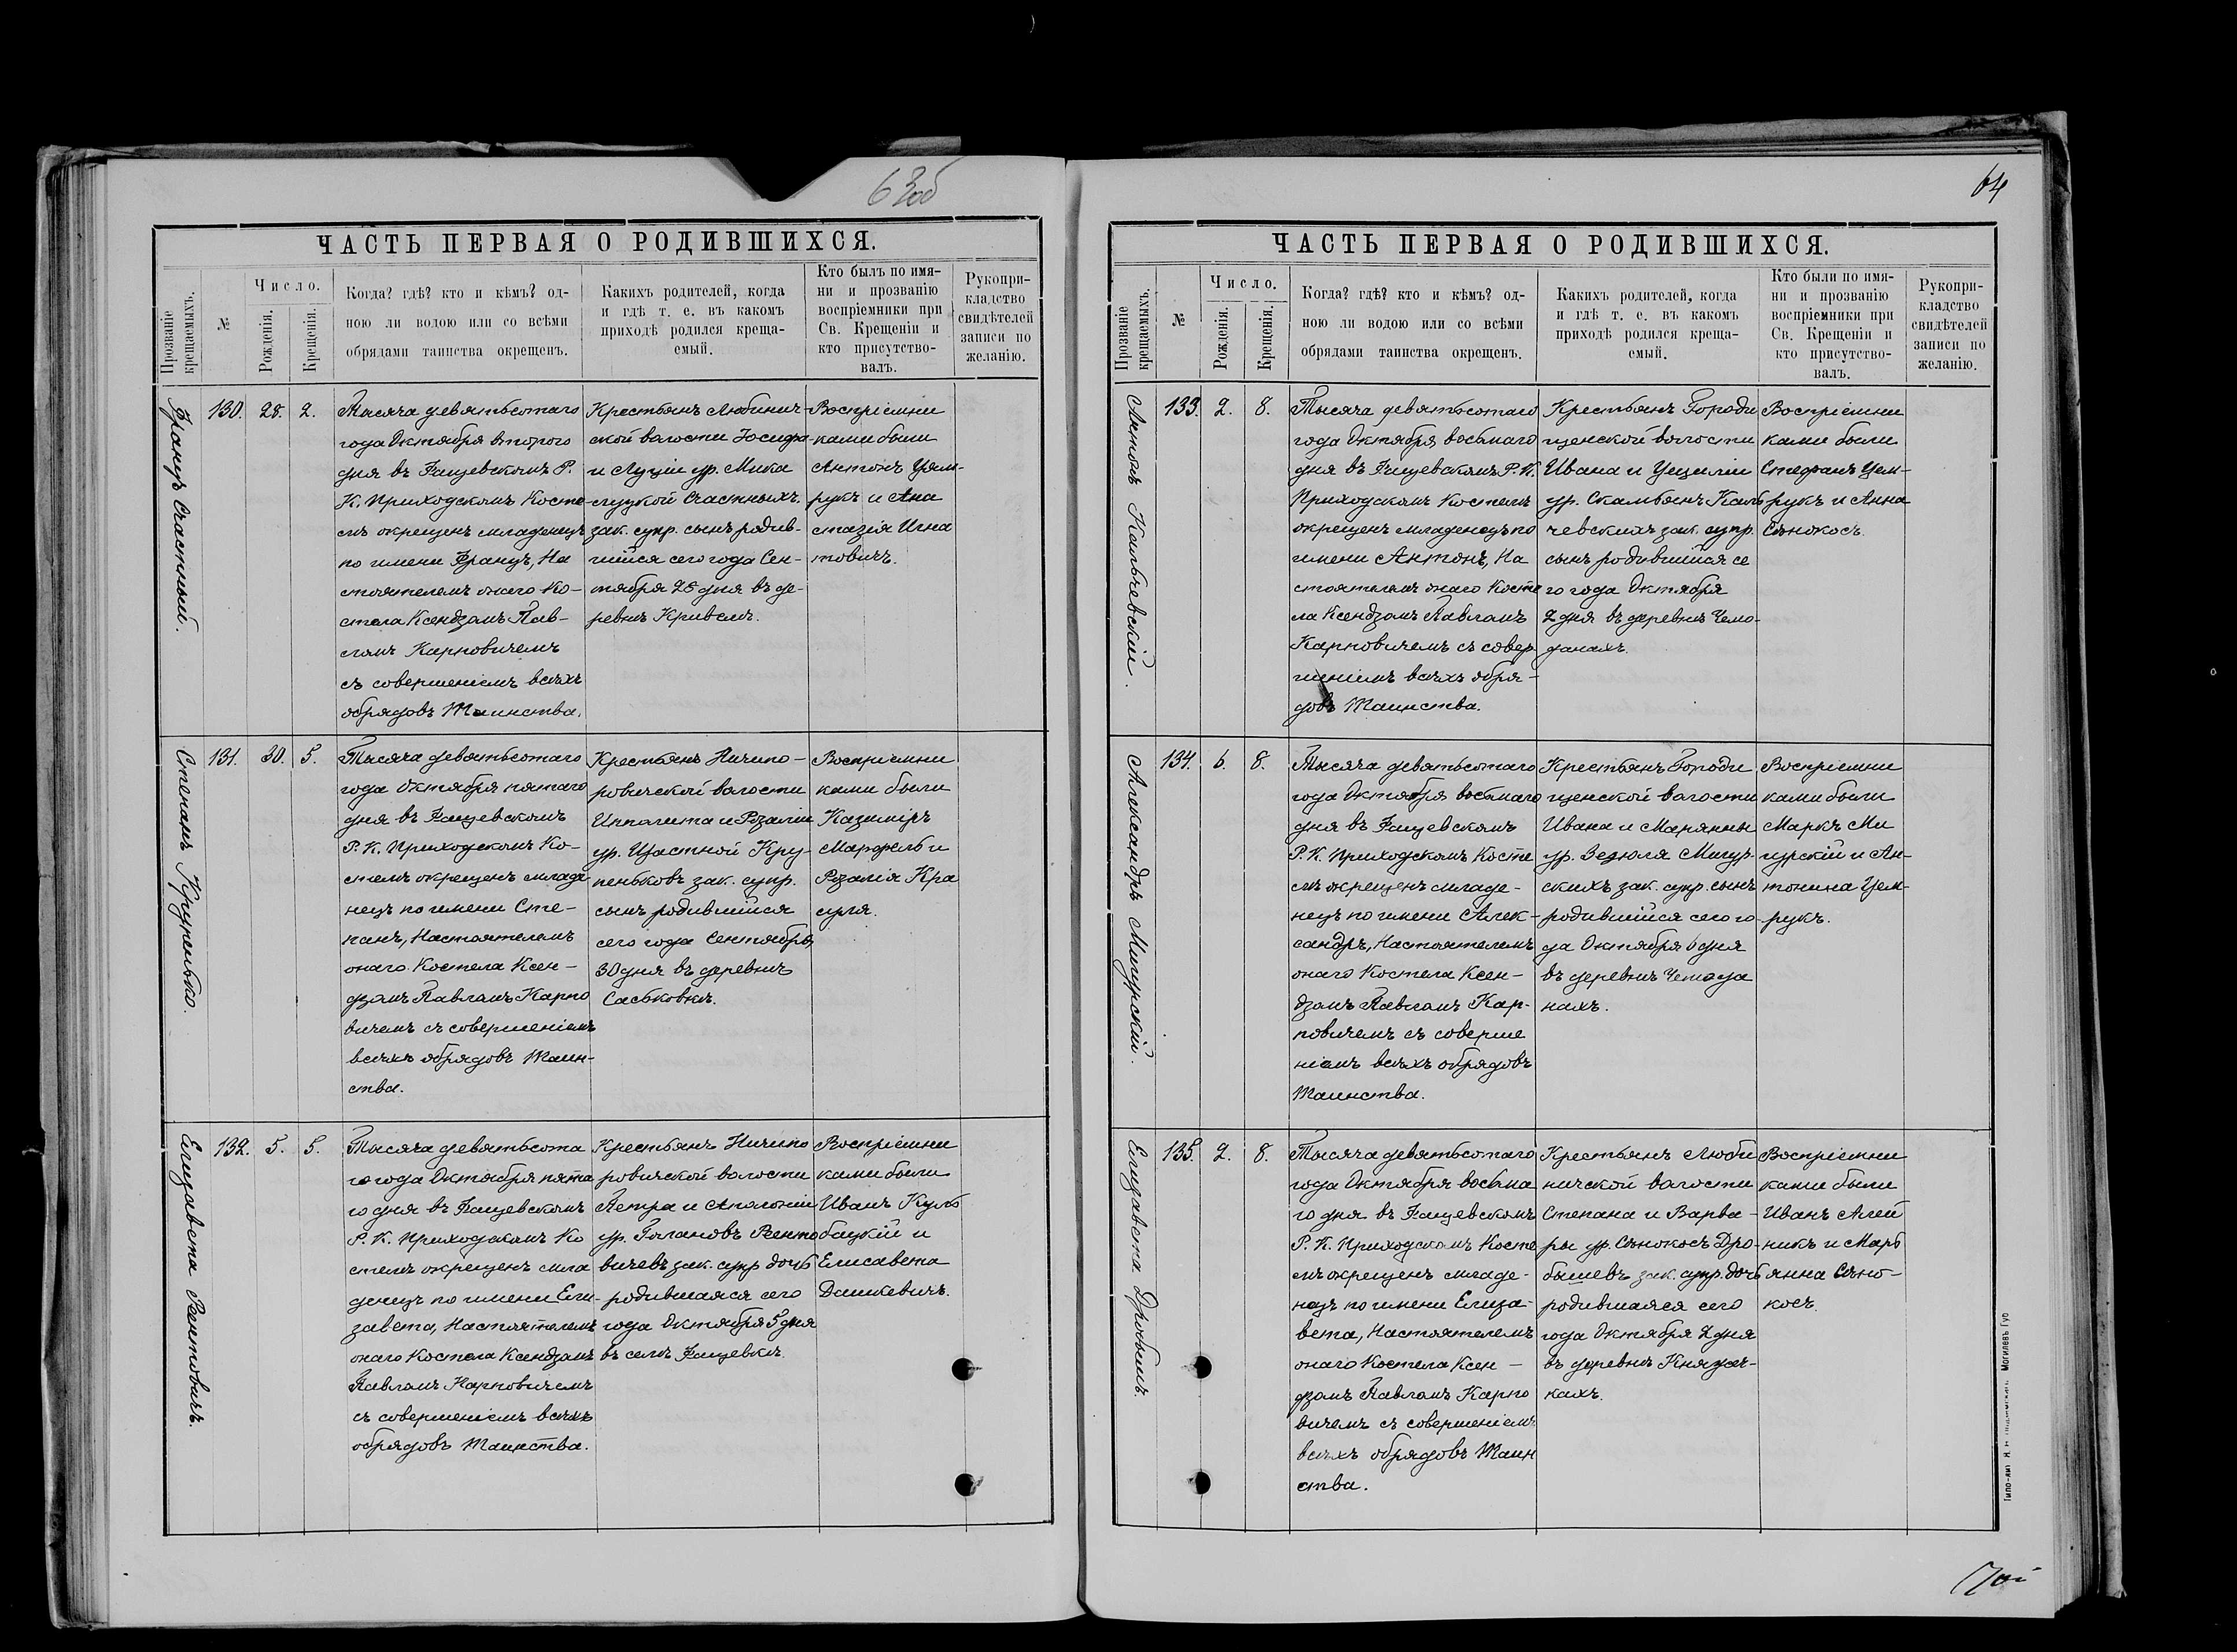 63об
ЧАСТЬ ПЕРВАЯ О РОДИВШИХСЯ.
Прозваніе крещаемыхъ.
№
Число.
Рожденія.
Крещенія.
Когда? гдѣ? кто и кѣмъ? од-
ною ли водою или со всѣми
обрядами таинства окрещенъ.
Какихъ родителей, когда
и гдѣ т. е. въ какомъ
приходѣ родился креща-
емый.
Кто былъ по имя-
ни и прозванію
воспріемники при
Св. Крещеніи и
кто присутство-
валъ.
Рукопри-
кладство
свидѣтелей
записи по
желанію.
Францъ Счастный.
130. 28. 2.
Тысяча девятьсотаго
года Октября второго
дня въ Фащевскомъ Р.
К. Приходскомъ Косте-
лѣ окрещенъ младенецъ
по имени Францъ, На
стоятелемъ онаго Ко-
стела Ксендзомъ Пав-
ломъ Карповичемъ
съ совершеніемъ всѣхъ
обрядовъ Таинства.
Крестьянъ Любинич-
ской волости Іосифа
и Луціи ур. Мика
луцкой Счастныхъ
зак. супр. сынъ родив-
шійся сего года Сен-
тября 28 дня въ де-
ревнѣ Кривелѣ.
Воспріемни
ками были
Антонъ Цем-
рукъ и Ана
стазія Игна
товичъ.
Степанъ Крупенько.
131. 30. 5.
Тысяча девятьсотаго
года Октября пятаго
дня въ Фащевскомъ
Р. К. Приходскомъ Ко-
стелѣ окрещенъ младе
нецъ по имени Сте-
панъ, Настоятелемъ
онаго Костела Ксен-
дзомъ Павломъ Карпо
вичемъ съ совершеніемъ
всѣхъ обрядовъ Таин-
ства.
Крестьянъ Ничипо-
ровичской волости
Ипполита и Розаліи
ур. Щастной Кру-
пеньковъ зак. супр.
сынъ родившійся
сего года Сентября
30 дня въ деревнѣ
Саськовкѣ.
Воспріемни
ками были
Казиміръ
Марфель и
Розалія Кра
суля.
Елизавета Рентовичъ.
132. 5. 5.
Тысяча девятьсота
го года Октября пята
го дня въ Фащевскомъ
Р. К. Приходскомъ Ко
стелѣ окрещенъ мла
денецъ по имени Ели-
завета, Настоятелемъ
онаго Костела Ксендзомъ
Павломъ Карповичемъ
съ совершеніемъ всѣхъ
обрядовъ Таинства.
Крестьянъ Ничипо
ровичской волости
Петра и Аполоніи
ур. Голановъ Ренто
вичевъ зак. супр. дочь
родившаяся сего
года Октября 5 дня
въ селѣ Фащевкѣ.
Воспріемни
ками были
Иванъ Куль
бацкій и
Елисавета
Дашкевичъ.
64
ЧАСТЬ ПЕРВАЯ О РОДИВШИХСЯ.
Прозваніе крещаемыхъ.
№
Число.
Рожденія.
Крещенія.
Когда? гдѣ? кто и кѣмъ? од-
ною ли водою или со всѣми
обрядами таинства окрещенъ.
Какихъ родителей, когда
и гдѣ т. е. въ какомъ
приходѣ родился креща-
емый.
Кто были по имя-
ни и прозванію
воспріемники при
Св. Крещеніи и
кто присутство-
валъ.
Рукопри-
кладство
свидѣтелей
записи по
желанію.
Антонъ Кольчевскій.
133. 2. 8.
Тысяча девятьсотаго
года Октября восьмаго
дня въ Фащевскомъ Р. К.
Приходскомъ Костелѣ
окрещенъ младенецъ по
имени Антонъ, На
стоятелемъ онаго Косте
ла Ксендзомъ Павломъ
Карповичемъ съ совер-
шеніемъ всѣхъ обря-
довъ Таинства.
Крестьянъ Городи
щенской волости
Ивана и Цециліи
ур. Скамьянъ Коль
чевскихъ зак. супр.
сынъ родившійся се
го года Октября
2 дня въ деревнѣ Чемо-
данахъ.
Воспріемни
ками были
Стефанъ Цем-
рукъ и Анна
Сѣнокосъ.
Александръ Мигурскій.
134. 6. 8.
Тысяча девятьсотаго
года Октября восьмаго
дня въ Фащевскомъ
Р. К. Приходскомъ Косте
лѣ окрещенъ младе-
нецъ по имени Алек-
сандръ, Настоятелемъ
онаго Костела Ксен-
дзомъ Павломъ Кар-
повичемъ съ соверше
ніемъ всѣхъ обрядовъ
Таинства.
Крестьянъ Городи
щенской волости
Ивана и Марянны
ур. Зезюля Мигур-
скихъ зак. супр. сынъ
родившійся сего го-
да Октября 6 дня
въ деревнѣ Чемода
нахъ.
Воспріемни
ками были
Маркъ Ми
гурскій и Ан-
тонина Цем-
рукъ.
Елизавета Дробышъ.
135. 2. 8.
Тысяча девятьсотаго
года Октября восьма
го дня въ Фащевскомъ
Р. К. Приходскомъ Косте
лѣ окрещенъ младе-
нецъ по имени Елиза-
вета, Настоятелемъ
онаго Костела Ксен-
дзомъ Павломъ Карпо
вичемъ съ совершеніемъ
всѣхъ обрядовъ Таин
ства.
Крестьянъ Люби
ничской волости
Степана и Варва-
ры ур. Сѣнокосъ Дро-
бышевъ зак. супр. дочь
родившаяся сего
года Октября 2 дня
въ деревнѣ Княжи-
кахъ.
Воспріемни
ками были
Иванъ Алей
никъ и Марь
янна Сѣно-
косъ.
Могилевъ Губ